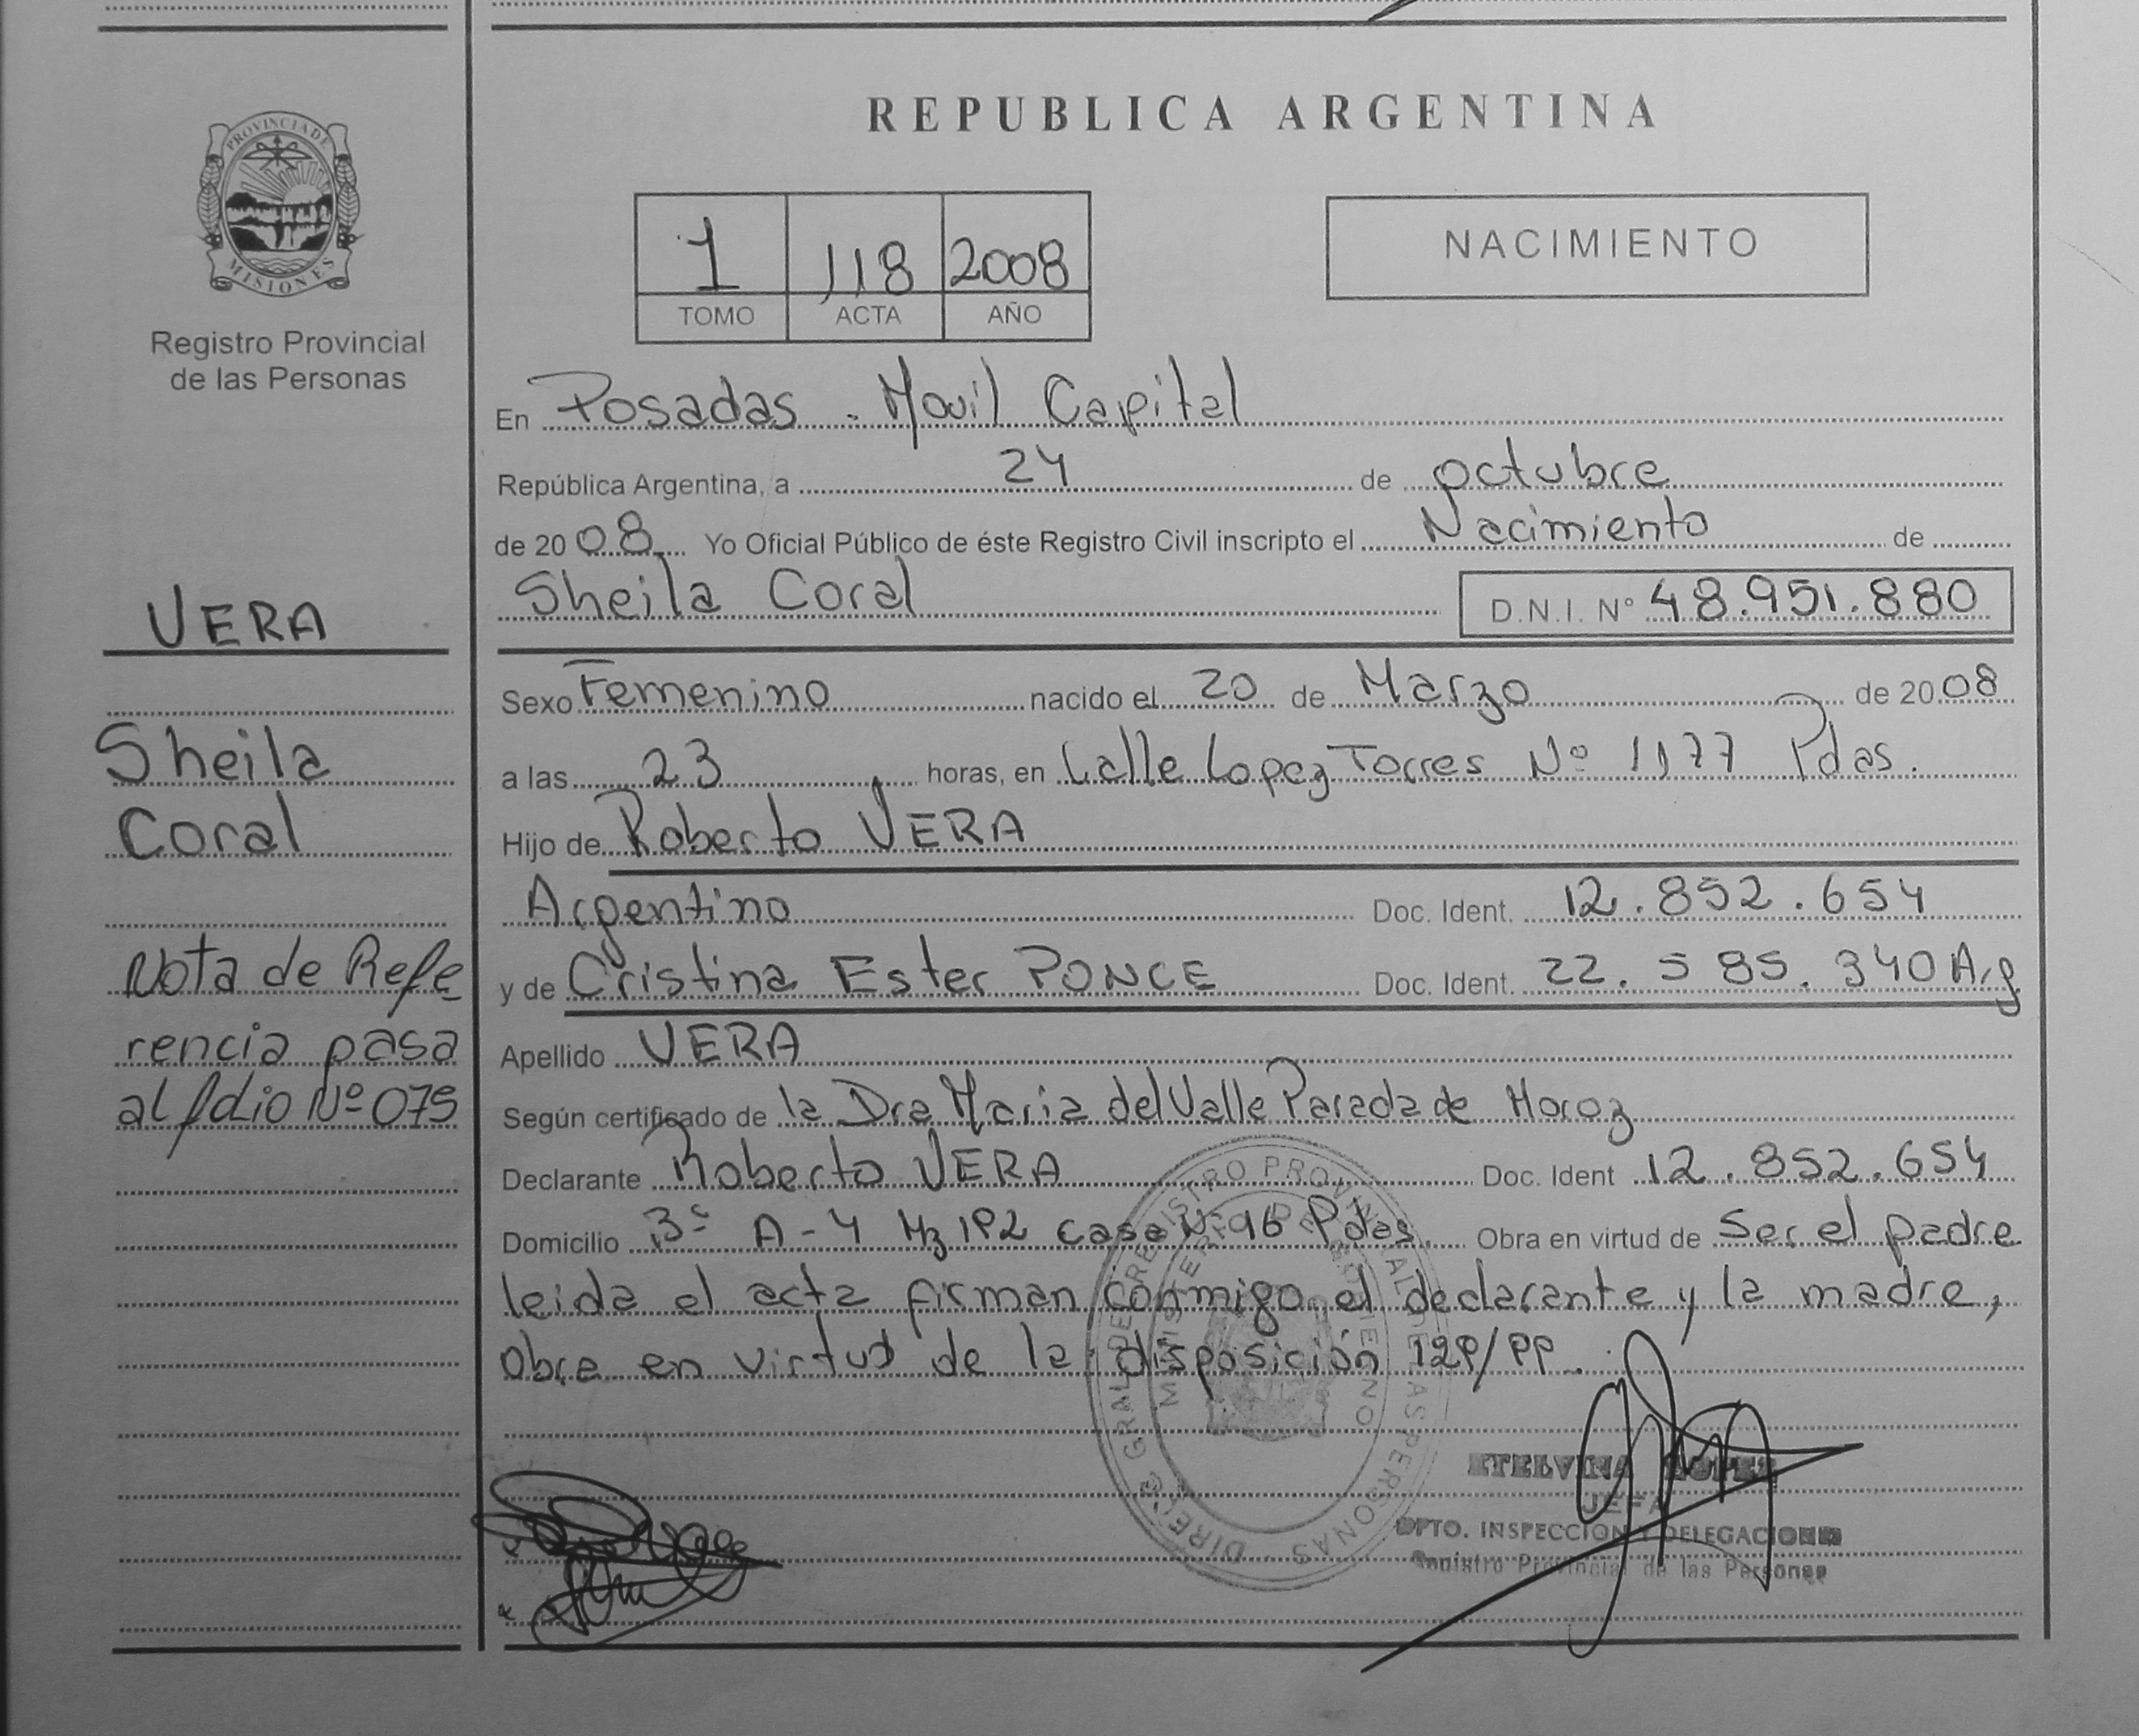 REPUBLICA ARGENTINA
PROVINCIA DE
MISIONES
Registro Provincial
de las Personas
1 118 2008
TOMO ACTA AÑO
NACIMIENTO
En Posadas - Movil Capital
República Argentina, a 24 de octubre
de 2008. Yo Oficial Público de éste Registro Civil inscripto el Nacimiento de
Sheila Coral D.N.I. Nº 48.951.880
VERA
Sheila
Coral
Nota de Refe
rencia pasa
al folio Nº 075
Sexo Femenino nacido el 20 de Marzo de 2008
a las 23 horas, en Calle Lopez Torres Nº 1177 Pdas.
Hijo de Roberto VERA
Argentino Doc. Ident. 12.852.654
y de Cristina Ester PONCE Doc. Ident. 22.585.340 Arg
Apellido VERA
Según certificado de la Dra Maria del Valle Parada de Moroz
Declarante Roberto VERA Doc. Ident 12.852.654
Domicilio A-4 Mz casa Nº 96 Pdas. Obra en virtud de Ser el padre
leida el acta firman conmigo el declarante y la madre,
Obra en virtud de la disposición
DIREC. GRAL DE REGISTRO PROVINCIAL DE LAS PERSONAS
MINISTERIO DE GOBIERNO
ETELVINA LOPEZ
JEFA
DPTO. INSPECCION Y DELEGACIONES
Registro Provincial de las Personas